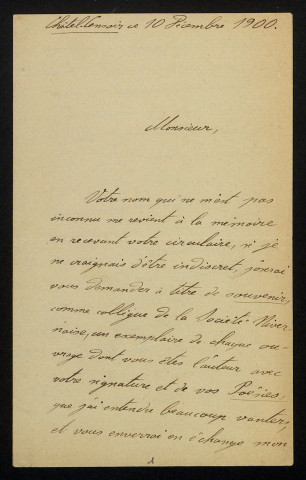 Châtel-Censoir ce 10 Décembre 1900.
Monsieur,
Votre nom qui ne m'est pas
inconnu me revient à la mémoire
en recevant votre circulaire, si je
ne craignais d'être indiscret, j'oserai
vous demander à titre de souvenir,
comme collègue de la Société Niver-
naise, un exemplaire de chaque ou-
vrage dont vous êtes l'auteur avec
votre signature et de vos Poésies,
que j'ai entendu beaucoup vanter,
et vous enverrai en échange mon
1